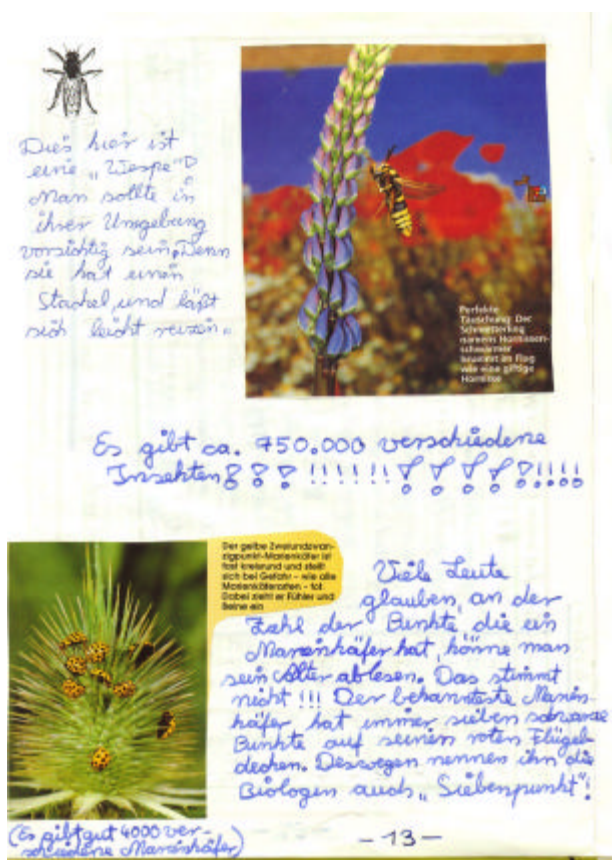 Dies hier ist
eine „Wespe"!
Man sollte in
ihrer Umgebung
vorsichtig sein. Denn
sie hat einen
Stachel und läßt
sich leicht reizen.
Perfekte
Täuschung: Der
Schmetterling
namens Hornissen-
schwärmer
brummt im Flug
wie eine giftige
Hornisse
Es gibt ca. 750.000 verschiedene
Insekten!!! !!!!!! !!!!!!!!!
Der gelbe Zweiundzwan-
zigpunkt-Marienkäfer ist
fast kreisrund und stellt
sich bei Gefahr – wie alle
Marienkäferarten – tot.
Dabei zieht er Fühler und
Beine ein
Viele Leute
glauben, an der
Zahl der Punkte, die ein
Marienkäfer hat, könne man
sein Alter ablesen. Das stimmt
nicht !!! Der bekannteste Marien-
käfer hat immer sieben schwarze
Punkte auf seinen roten Flügel-
decken. Deswegen nennen ihn die
Biologen auch „Siebenpunkt"!
(Es gibt gut 4000 ver-
schiedene Marienkäfer)
-13-